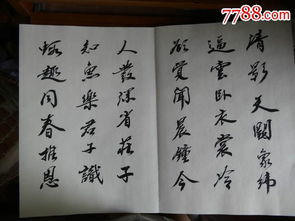 7788.com
清影天闕象緯
逼雲卧衣裳冷
欲覺聞晨鐘令
人發深省莊子
知魚樂君子識
趣同春推恩